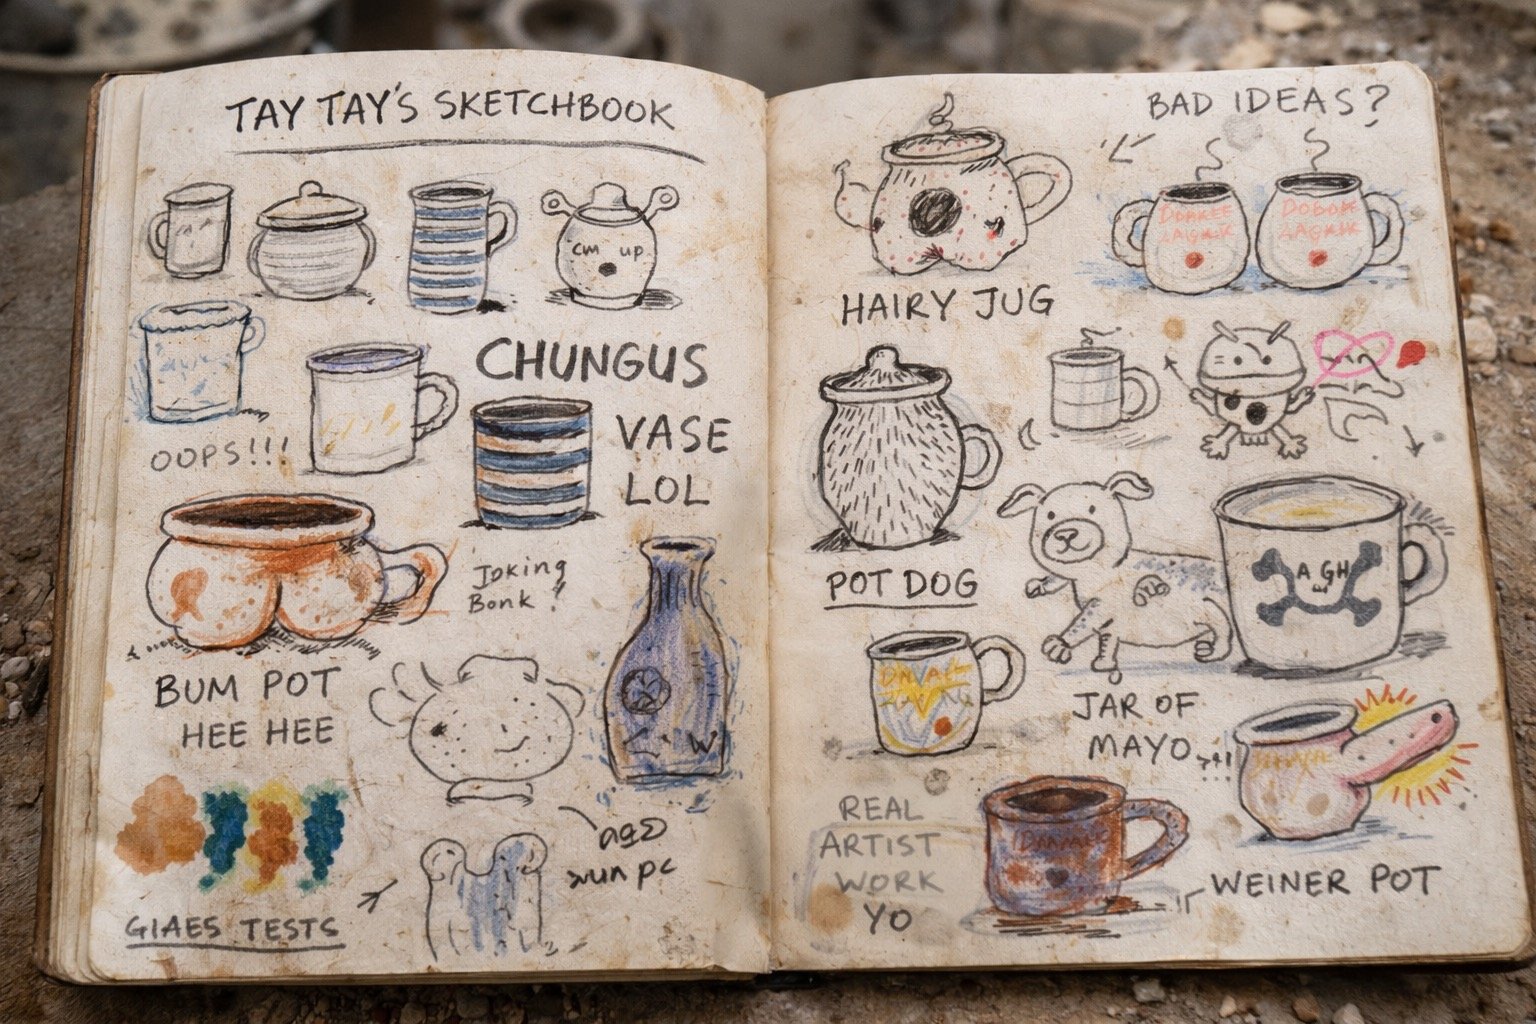 TAY TAY'S SKETCHBOOK
'CM UP
CHUNGUS
VASE
LOL
OOPS!!!
Joking
Bonk !
BUM POT
HEE HEE
GIAES TESTS
BAD IDEAS?
HAIRY JUG
POT DOG
AGH
JAR OF
MAYO
REAL
ARTIST
WORK
YO
WEINER POT